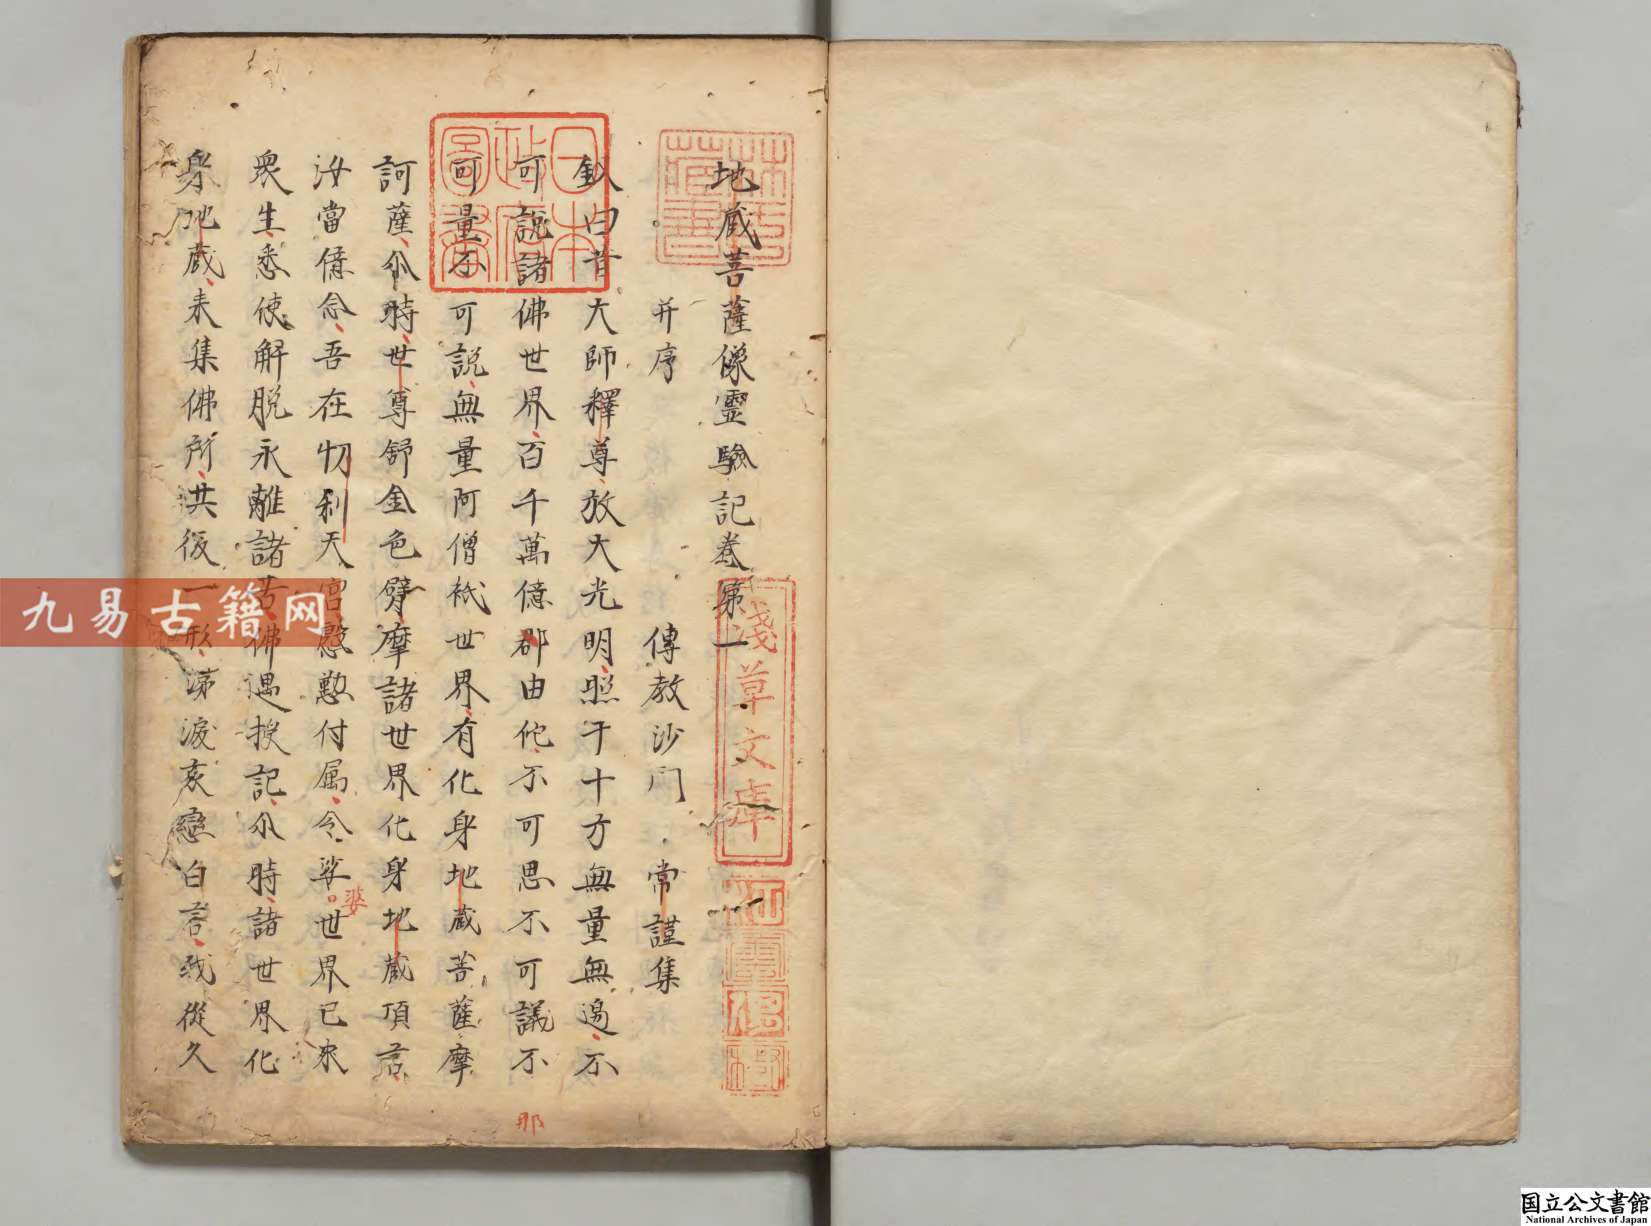 地蔵菩薩像霊驗記卷第一
并序　傳教沙门　常謹集
釼曰昔大師釋尊放大光明照于十方無量無邊不
可說諸佛世界百千萬億郡由他不可思不可議不
可量不可説無量阿僧祇世界有化身地蔵菩薩摩
訶薩尒時世尊舒金色臂摩諸世界化身地蔵頂言
汝當億念吾在忉利天宮慇懃付属令娑世界已来
衆生悉使解脱永離諸苦佛遇授記尒時諸世界化
身地蔵来集佛所共後一形涕淚哀戀白言我從久
婆
那
日本政府圖書
淺草文庫
九易古籍网
国立公文書館
National Archives of Japan